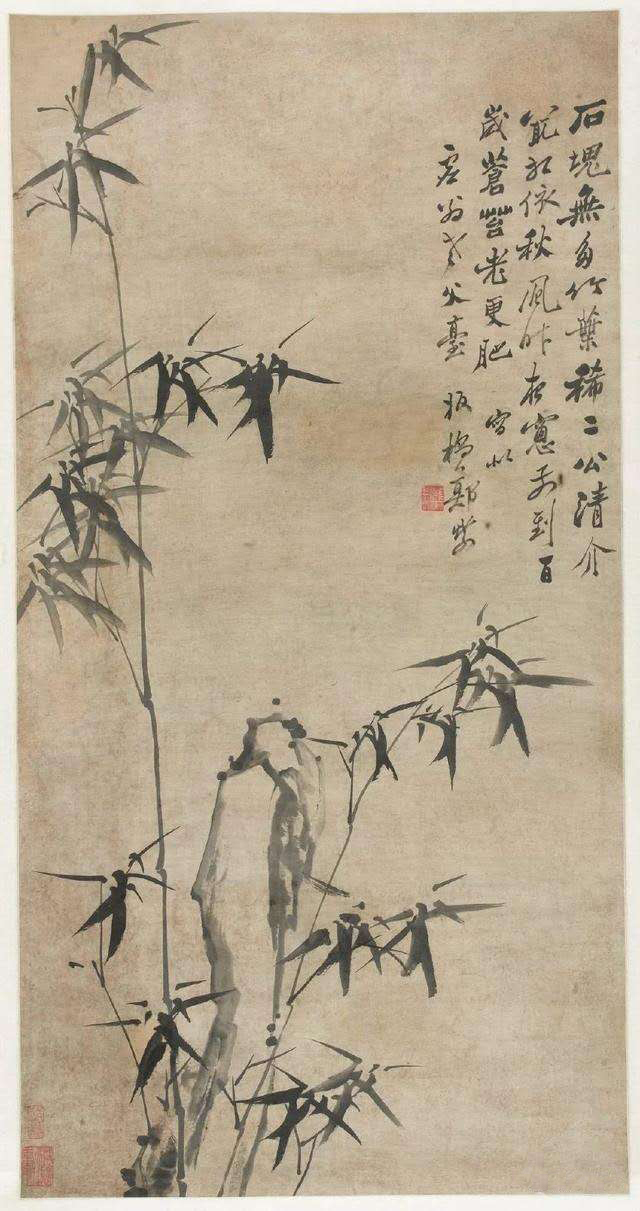 石塊無多竹葉稀二公清介
最相依秋風昨夜窻前到百
歲蒼苔老更肥 寫似
翁老父臺 板橋鄭燮